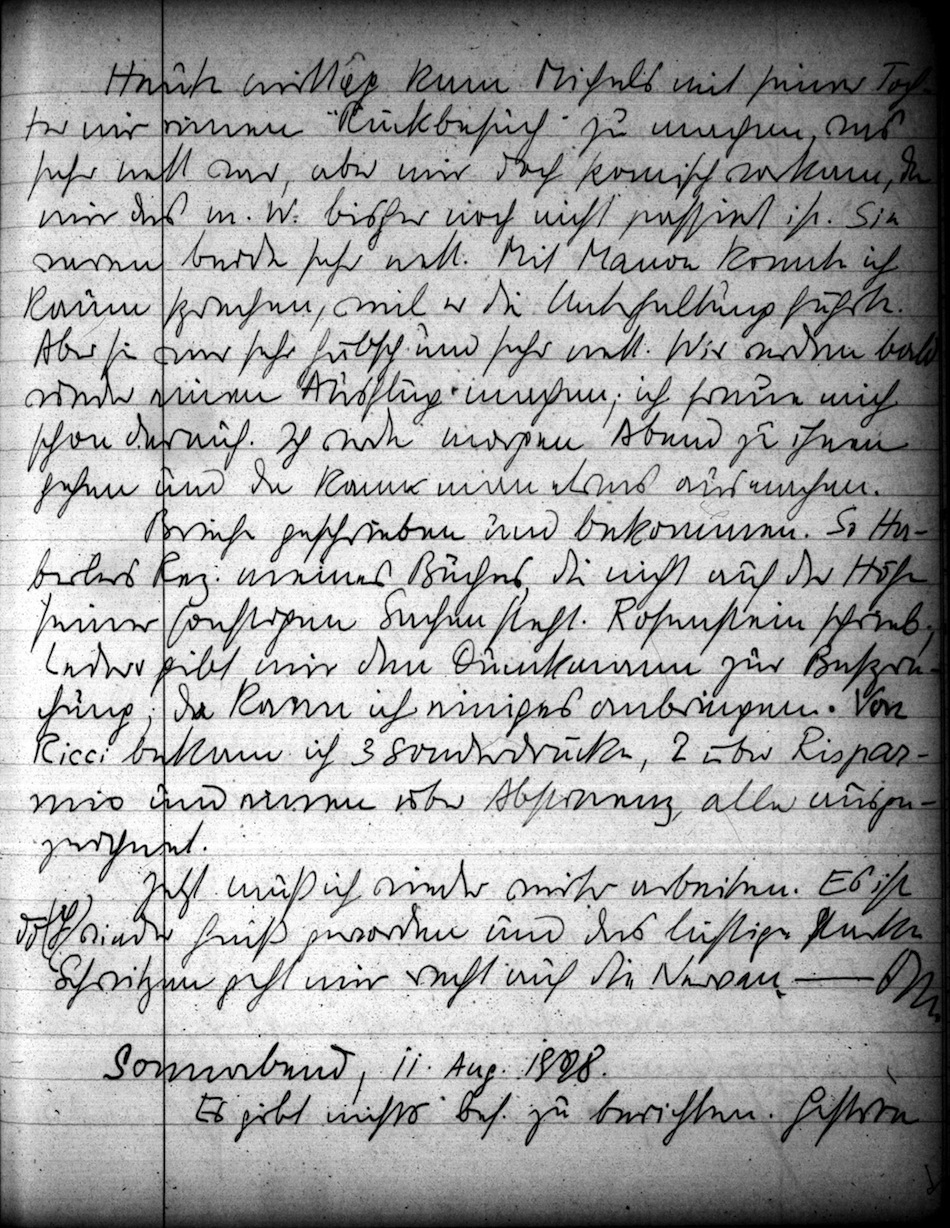 Heute mittag kam Michels mit seiner Toch-
ter mir einen "Rückbesuch" zu machen, was
sehr nett war, aber mir doch komisch vorkam, da
mir das m. W. bisher noch nicht passiert ist. Sie
waren beide sehr nett. Mit Manon konnte ich
kaum sprechen, weil er die Unterhaltung führte.
Aber sie war sehr hübsch und sehr nett. Wir werden bald
wieder einen Ausflug machen; ich freue mich
schon darauf. Ich werde morgen Abend zu ihnen
gehen und da kann man etwas ausmachen.
Briefe geschrieben und bekommen. So Ha-
berlers Rez. meines Buches, die nicht auf der Höhe
seiner sonstigen Sachen steht. Rosenstein schrieb,
Lederer gibt mir den Dunkmann zur Bespre-
chung; da kann ich einiges anbringen. Von
Ricci bekam ich 3 Sonderdrucke, 2 über Rispar-
mio und einen über Abstinenz, alle ausge-
zeichnet.
Jetzt muß ich wieder weiter arbeiten. Es ist
wieder heiß geworden und das lästige starke
Schwitzen geht mir recht auf die Nerven.
Sonnabend, 11. Aug. 1928.
Es gibt nichts Bes. zu berichten. Gestern